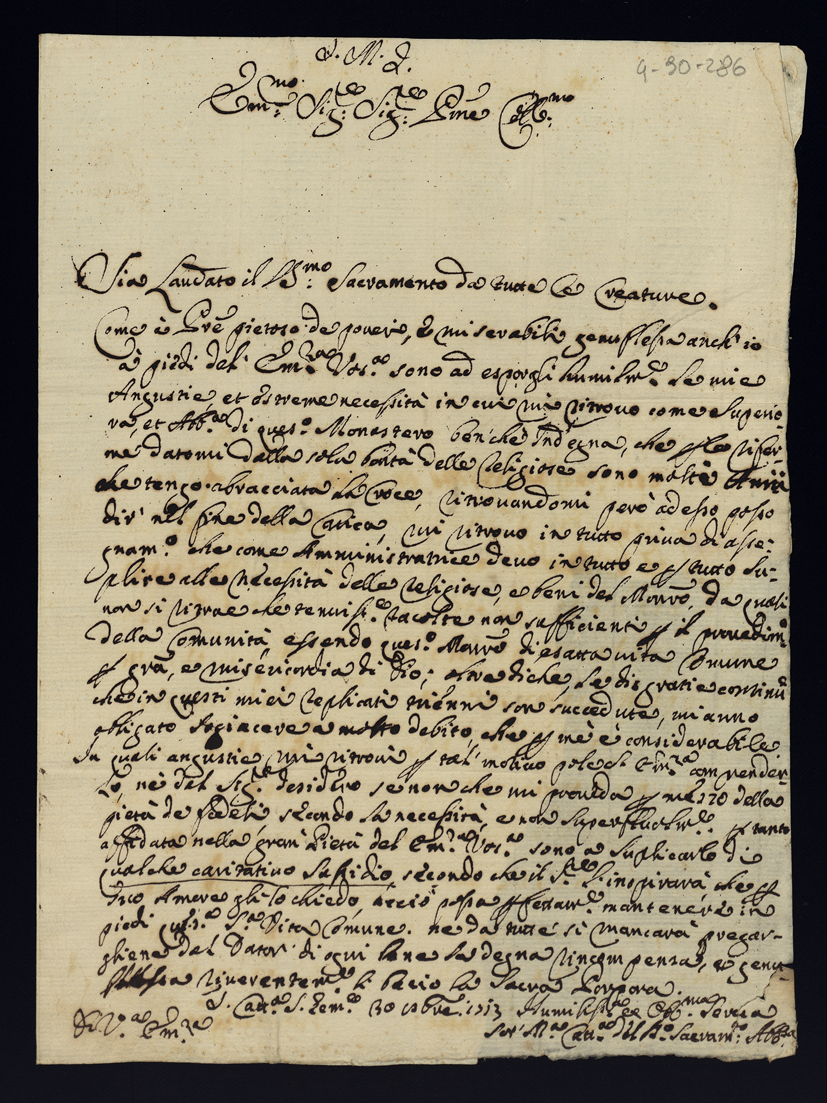 J. M. J.
4-30-286
Em:mo Sig:re Sig:re Prne Coll:mo
Sia Laudato il SS:mo Sacramento da tutte le Creature.
Come à Prē pietoso de poveri, e miserabili genuflessa anch'io
à piedi dell' Em:za Vos:a sono ad esporgli humilm:te le mie
Angustie, et estreme necessità in cui mi ritrovo come Superio-
ra, et Abb:a di ques:o Monastero benche Indegna, che
me datomi dalla sola bontà delle religiose sono molti Anni
che tengo abracciata la Croce, ritrovandomi però adesso posso
dir' nel fine della Carica, mi ritrovo in tutto priva di asse-
gnam:o che come Amministratrice devo in tutto e p tutto su-
plire alle necessità delle religiose, e beni del Monrō, da quali
non si ritrae che tenuis:e racolte non sufficienti p il provedim:o
della Comunità, essendo ques:o Monrō di esatta vita Comune
p grā, e misericordia di Dio; oltre diche, le disgratie continū
che in questi miei replicati trienni son succedute, mi anno
obligato sogiacere a molto debito, che p me è considerabile
In quali angustie mi ritrovi p tal' motivo pole S. Em:za comprender-
lo, ne del Sig:re desidero se non che mi proveda p mezzo della
pietà de fideli, secondo la necessità, e non superfluam:te p tanto
affidata nella gran Pietà del Em:za Vos:a sono a suplicarlo di
qualche caritativo sussidio, secondo che il Sig:re l'inspirarà, che p
suo Amore gli lo chiedo, acciò possa mantenere in
piedi ques:a S:a Vita Comune. ne da tutte si mancarà pregar-
gliene dal Dator' di ogni bene la degna ricompensa, e genu-
flessa riverentem:te li bacio la Sacra Porpora.
Di V:a Em:za
S. Catt:a S. Gem:o 30 1713 Humiliss:a et Obb:ma Serva
Sor' M:a Catt:a del SS:o Sacram:to Abb:a